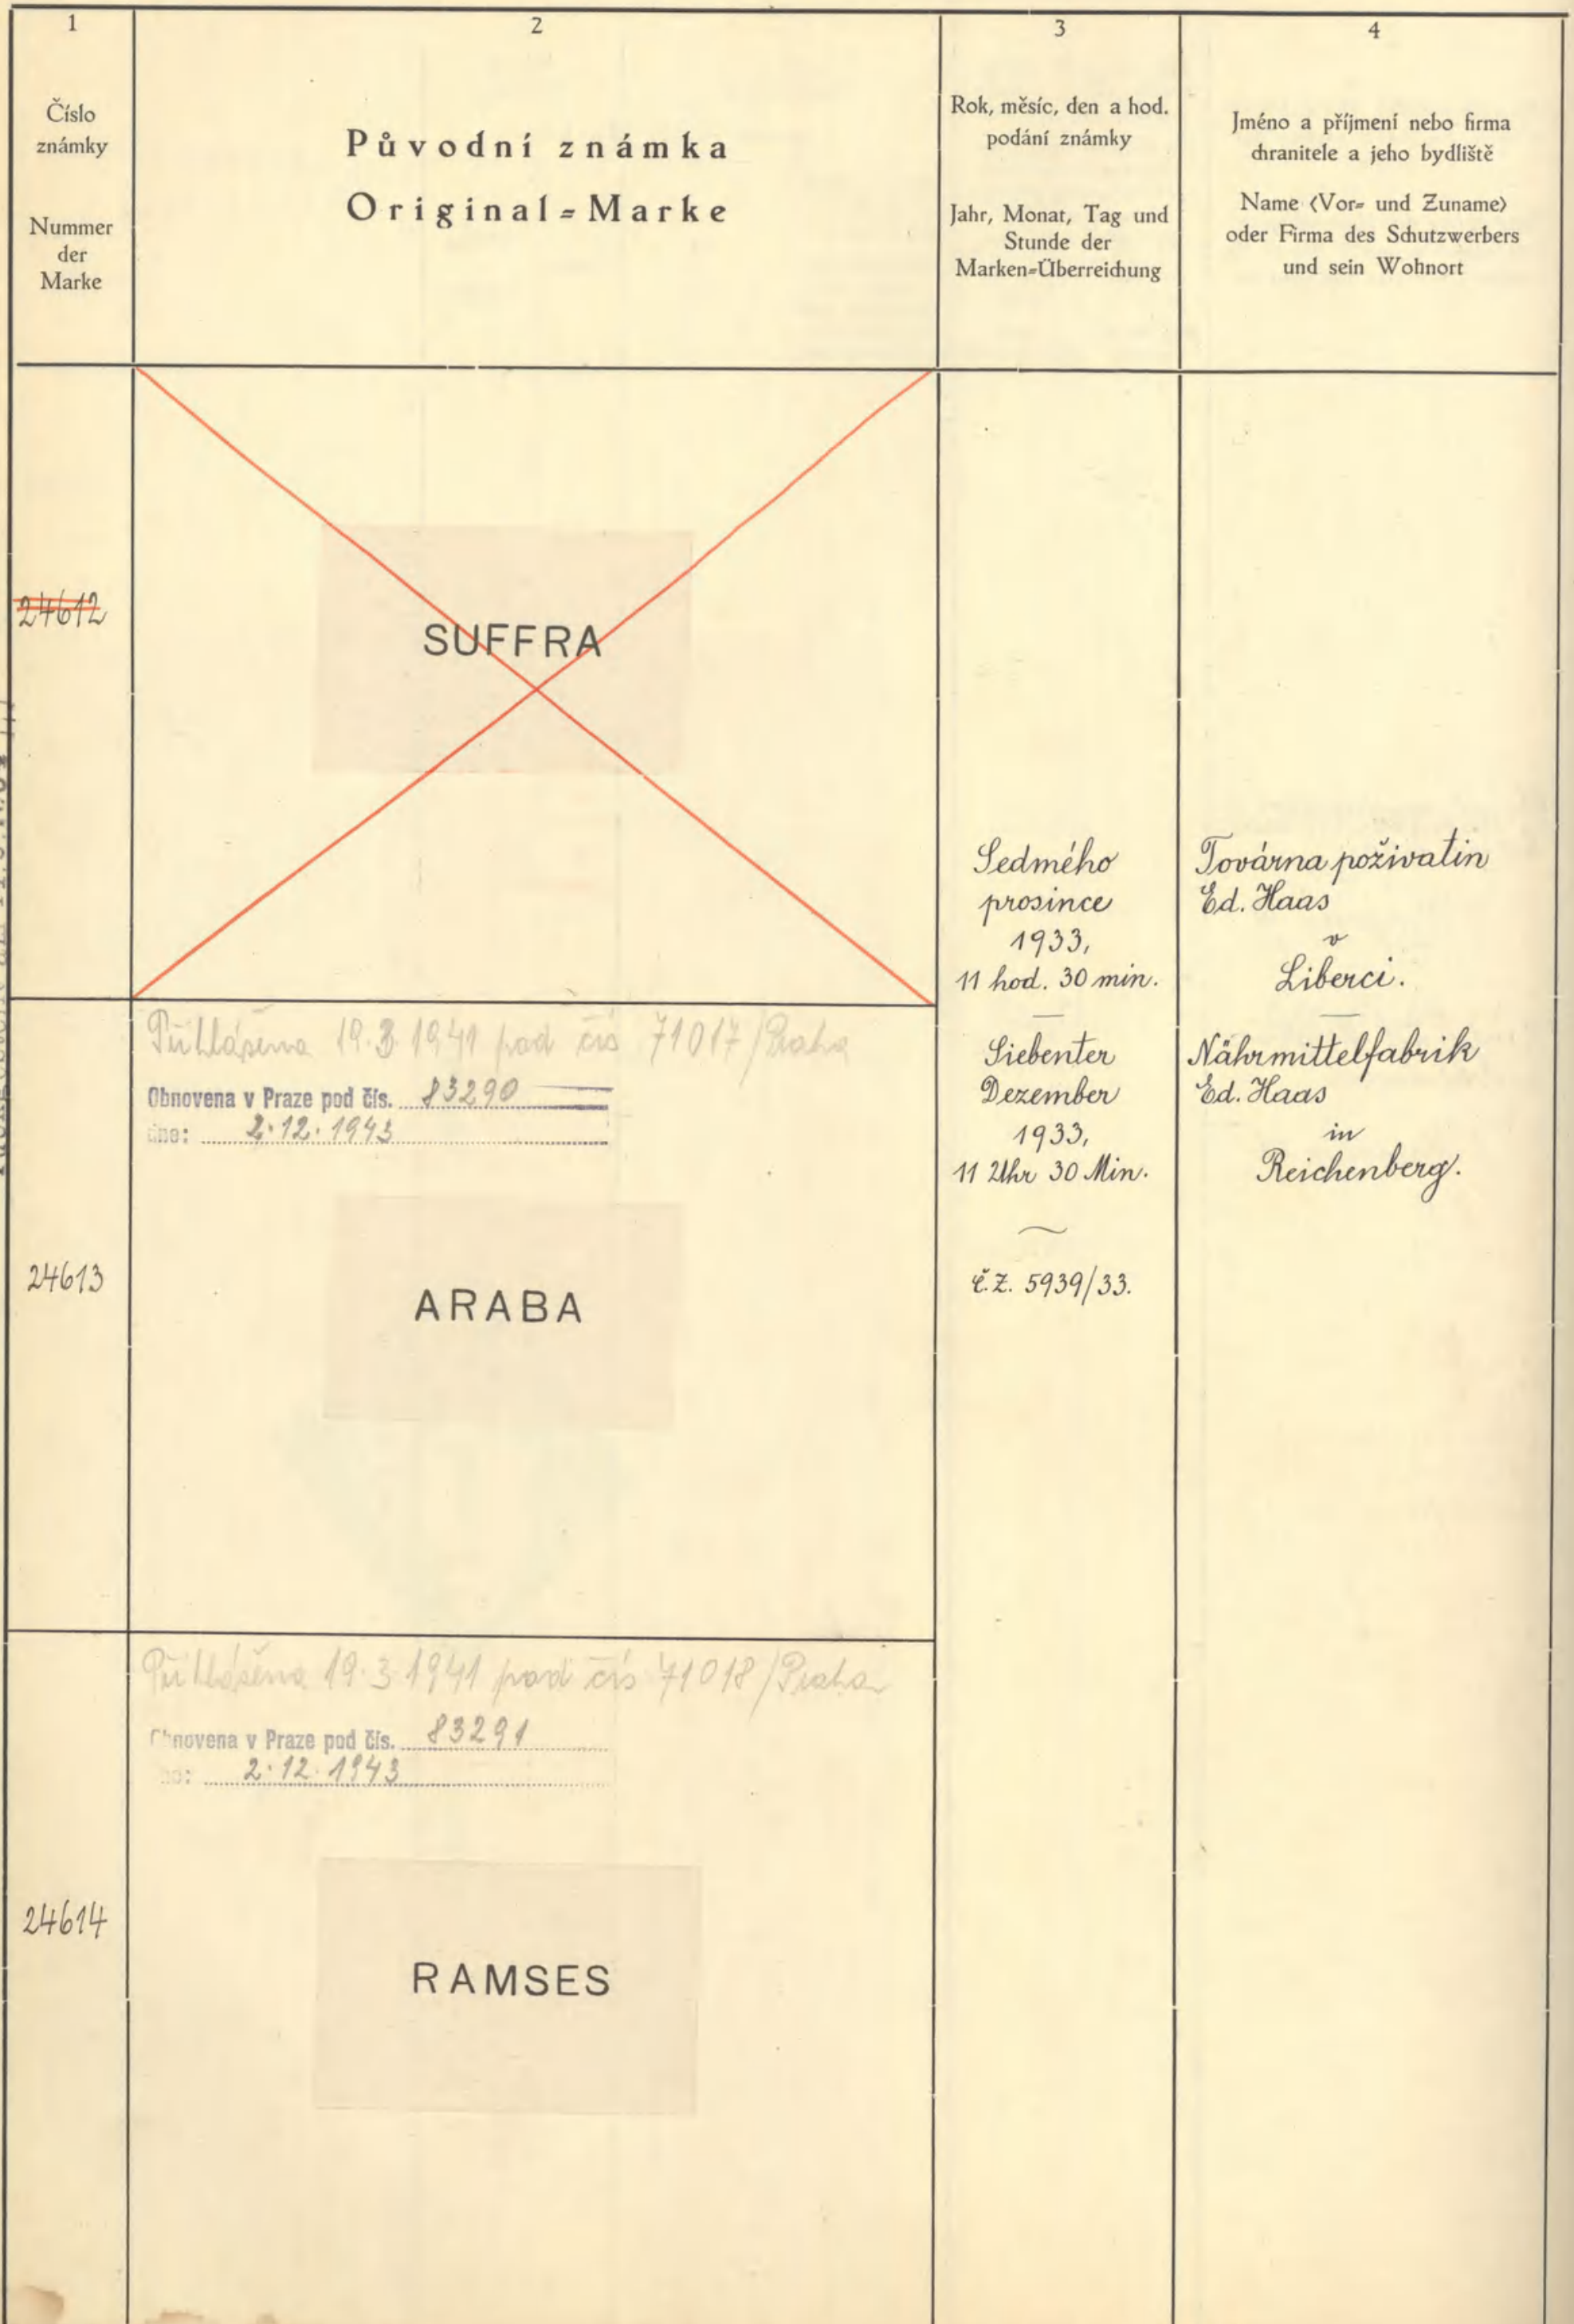 1
Číslo
známky
Nummer
der
Marke
2
Původní známka
Original=Marke
3
Rok, měsíc, den a hod.
podání známky
Jahr, Monat, Tag und
Stunde der
Marken=Überreichung
4
Jméno a příjmení nebo firma
chranitele a jeho bydliště
Name (Vor= und Zuname)
oder Firma des Schutzwerbers
und sein Wohnort
24612
SUFFRA
Sedmého
prosince
1933,
11 hod. 30 min.
Siebenter
Dezember
1933,
11 Uhr 30 Min.
č.z. 5939/33.
Továrna poživatin
Ed. Haas
v
Liberci.
Nährmittelfabrik
Ed. Haas
in
Reichenberg.
Přihlášena 19.3.1941 pod čís 71017/Praha
Obnovena v Praze pod čís. 83290
dne: 2.12.1943
24613
ARABA
Přihlášena 19.3.1941 pod čís 71018/Praha
Obnovena v Praze pod čís. 83291
dne: 2.12.1943
24614
RAMSES